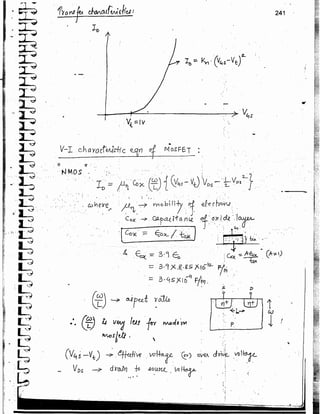 Transfer characteristics:
241
I_D
I_D = K_n . (V_GS - V_t)^2
V_GS
V_t = 1V
V-I characteristic eqn of MOSFET :
NMOS
I_D = μ_n C_ox (ω/L) { (V_GS - V_t) V_DS - 1/2 V_DS^2 }
where, μ_n → mobility of electrons
C_ox → Capacitance of oxide layer
C_ox = ε_ox / t_ox
t_ox
C_ox = Aε_ox / t_ox (A=1)
& ε_ox = 3.9 ε_0
= 3.9 × 8.85 × 10^-12 F/m
= 3.45 × 10^-11 F/m.
(ω/L) → aspect ratio
S D
n+ n+
L
P
ω
∴ (ω/L) is very less for modern
mosfets.
(V_GS - V_t) → Effective voltage (or) over drive voltage
V_DS → drain to source voltage